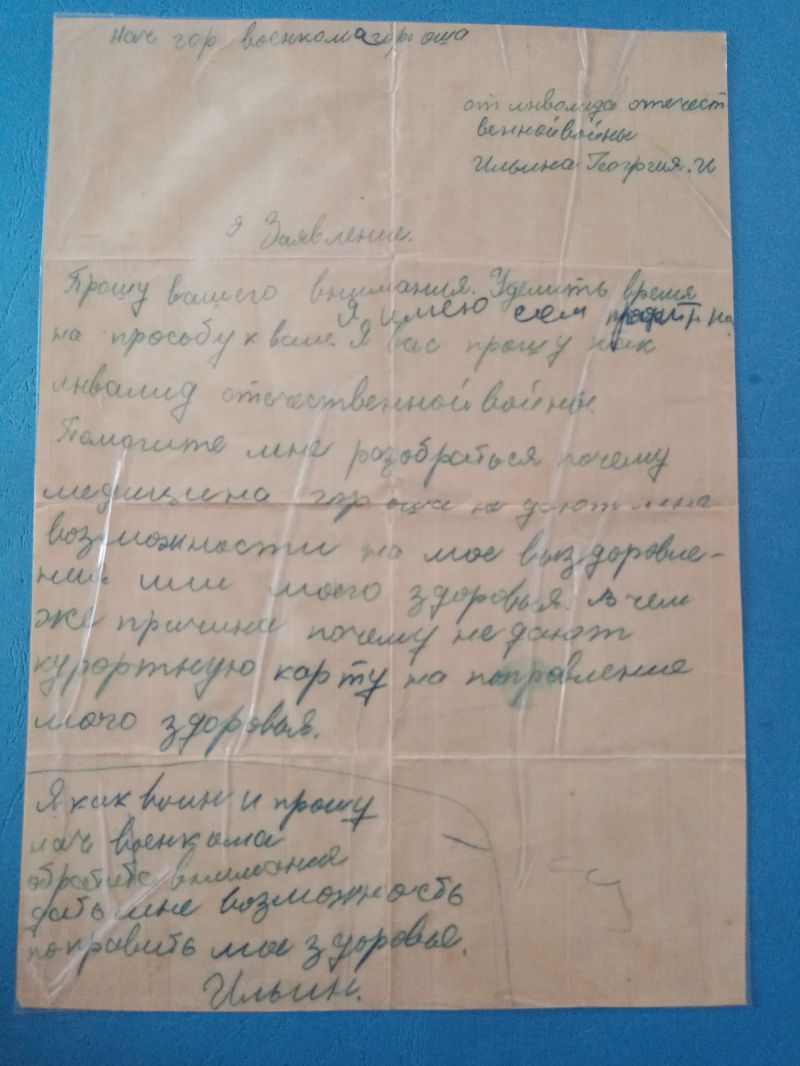 нач гор военкома гор оша
от инвалида отечест
венной войны
Ильина Георгия.И
Заявление.
Прошу вашего внимания. Уделить время
Я имею сем
на прозобу к вам. Я вас прошу как
инвалид отечественной войны.
Помогите мне разобраться почему
медицина гор оша не дают мне
возможности на мое выздоровле-
ния или моего здоровья. В чем
же причина почему не дают
курортную карту на поправление
моего здоровья.
Я как воин и прошу
нач военкома
обратите внимания
дать мне возможность
поправить мое здоровье.
Ильин.